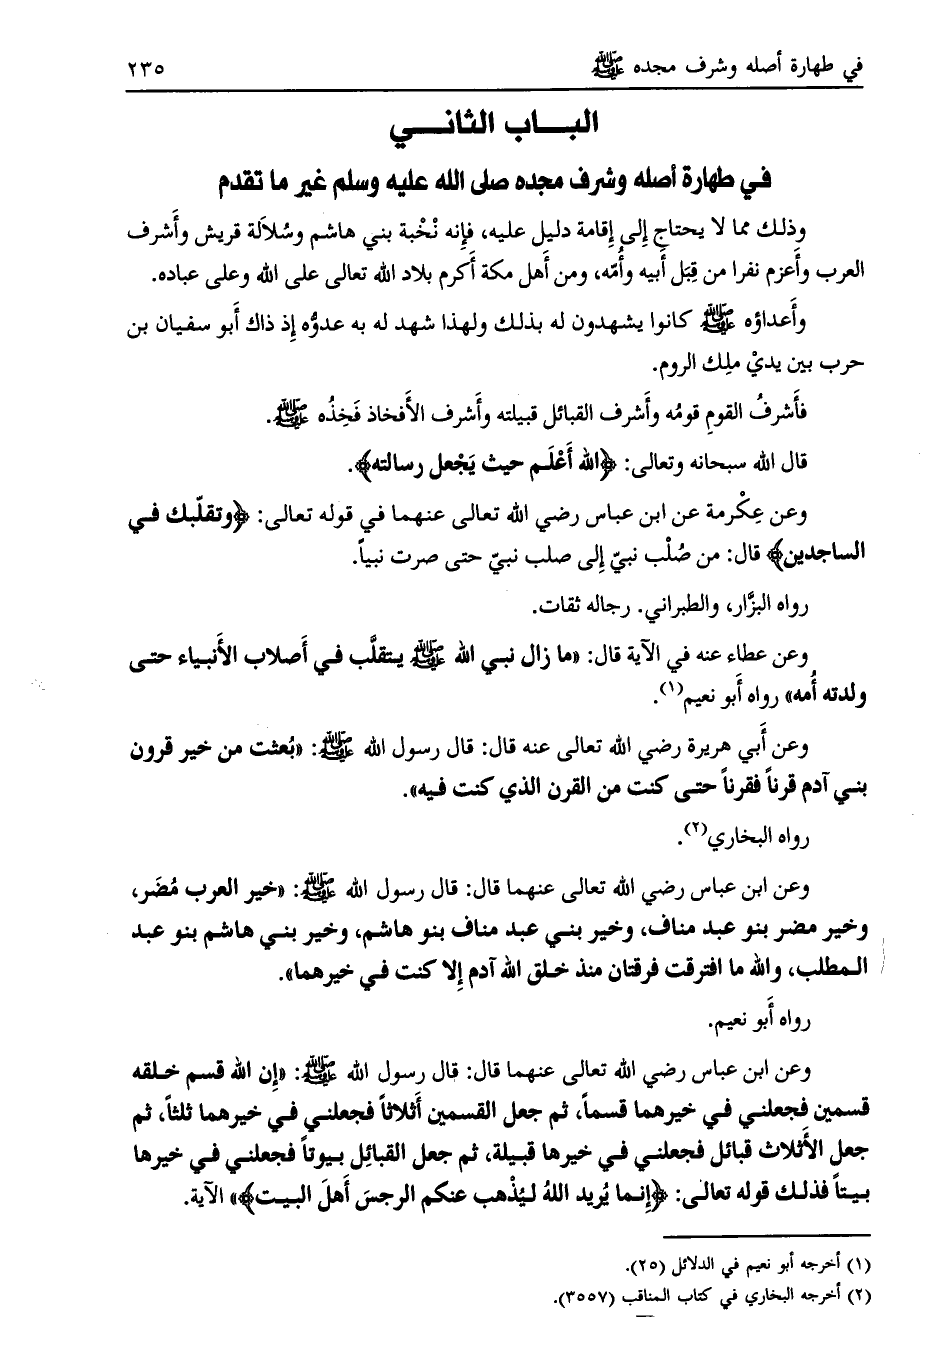 في طهارة أصله وشرف مجده ﷺ ٢٣٥
البـــاب الثانـــي
في طهارة أصله وشرف مجده صلى الله عليه وسلم غير ما تقدم
وذلك مما لا يحتاج إلى إقامة دليل عليه، فإنه نُخْبة بني هاشم وسُلاَلة قريش وأَشرف
العرب وأَعزم نفرا من قِبَل أَبيه وأُمّه، ومن أَهل مكة أَكرم بلاد الله تعالى على الله وعلى عباده.
وأَعداؤه ﷺ كانوا يشهدون له بذلك ولهذا شهد له به عدوُّه إذ ذاك أَبو سفيان بن
حرب بين يديْ ملِك الروم.
فأَشرفُ القومِ قومُه وأَشرف القبائل قبيلته وأَشرف الأَفخاذ فَخِذُه ﷺ.
قال الله سبحانه وتعالى: ﴿الله أَعْلَم حيث يَجْعل رسالته﴾.
وعن عِكْرمة عن ابن عباس رضي الله تعالى عنهما في قوله تعالى: ﴿وتقلّبك في
الساجدين﴾ قال: من صُلْب نبيّ إلى صلب نبيّ حتى صرت نبياً.
رواه البزَّار، والطبراني. رجاله ثقات.
وعن عطاء عنه في الآية قال: «ما زال نبي الله ﷺ يتقلَّب في أَصلاب الأَنبياء حتى
ولدته أُمه» رواه أَبو نعيم(١).
وعن أَبي هريرة رضي الله تعالى عنه قال: قال رسول الله ﷺ: «بُعثت من خير قرون
بني آدم قرناً فقرناً حتى كنت من القرن الذي كنت فيه».
رواه البخاري(٢).
وعن ابن عباس رضي الله تعالى عنهما قال: قال رسول الله ﷺ: «خير العرب مُضَر،
وخير مضر بنو عبد مناف، وخير بني عبد مناف بنو هاشم، وخير بني هاشم بنو عبد
المطلب، والله ما افترقت فرقتان منذ خلق الله آدم إلا كنت في خيرهما».
رواه أَبو نعيم.
وعن ابن عباس رضي الله تعالى عنهما قال: قال رسول الله ﷺ: «إن الله قسم خلقه
قسمين فجعلني في خيرهما قسماً، ثم جعل القسمين أَثلاثاً فجعلني في خيرهما ثلثاً، ثم
جعل الأَثلاث قبائل فجعلني في خيرها قبيلة، ثم جعل القبائل بيوتاً فجعلني في خيرها
بيتاً فذلك قوله تعالى: ﴿إنما يُريد اللهُ ليُذْهب عنكم الرجسَ أَهلَ البيت﴾» الآية.
(١) أخرجه أبو نعيم في الدلائل (٢٥).
(٢) أخرجه البخاري في كتاب المناقب (٣٥٥٧).